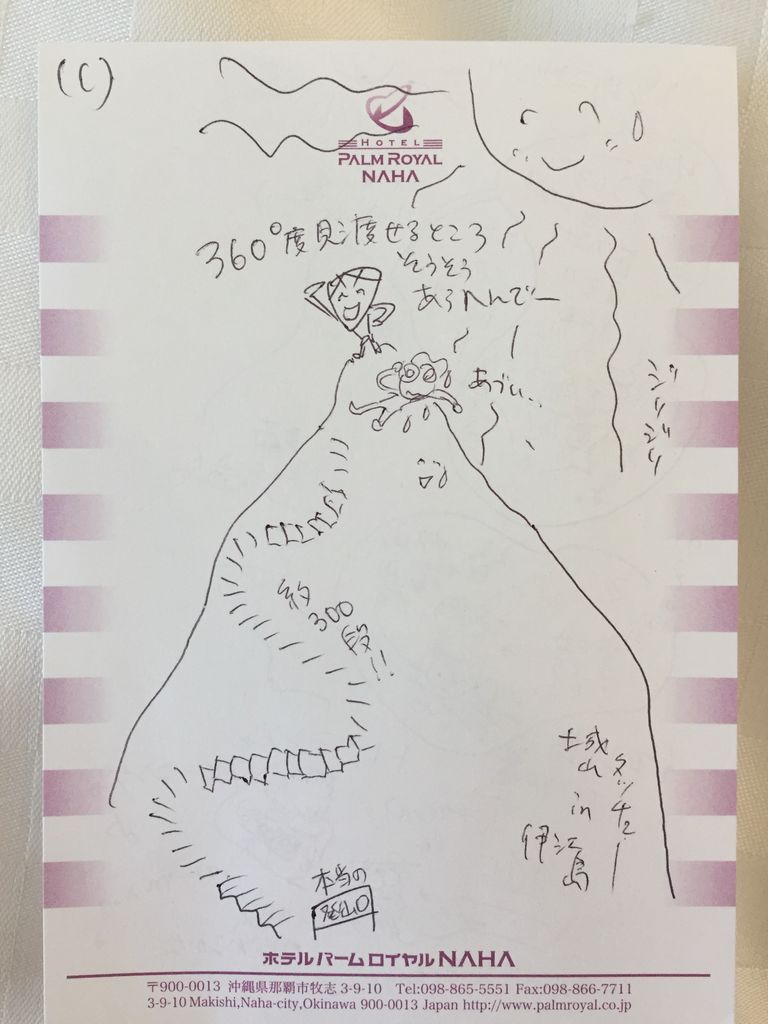 (C)
HOTEL
PALM ROYAL
NAHA
360°度見渡せるところ
そうそう
あらへんでー
あづい..
ジリジリ
約
300
段!!
城山
タッチュー
in
伊江島
本当の
登山口
ホテル パーム ロイヤル NAHA
〒900-0013 沖縄県那覇市牧志 3-9-10 Tel:098-865-5551 Fax:098-866-7711
3-9-10 Makishi,Naha-city,Okinawa 900-0013 Japan http://www.palmroyal.co.jp